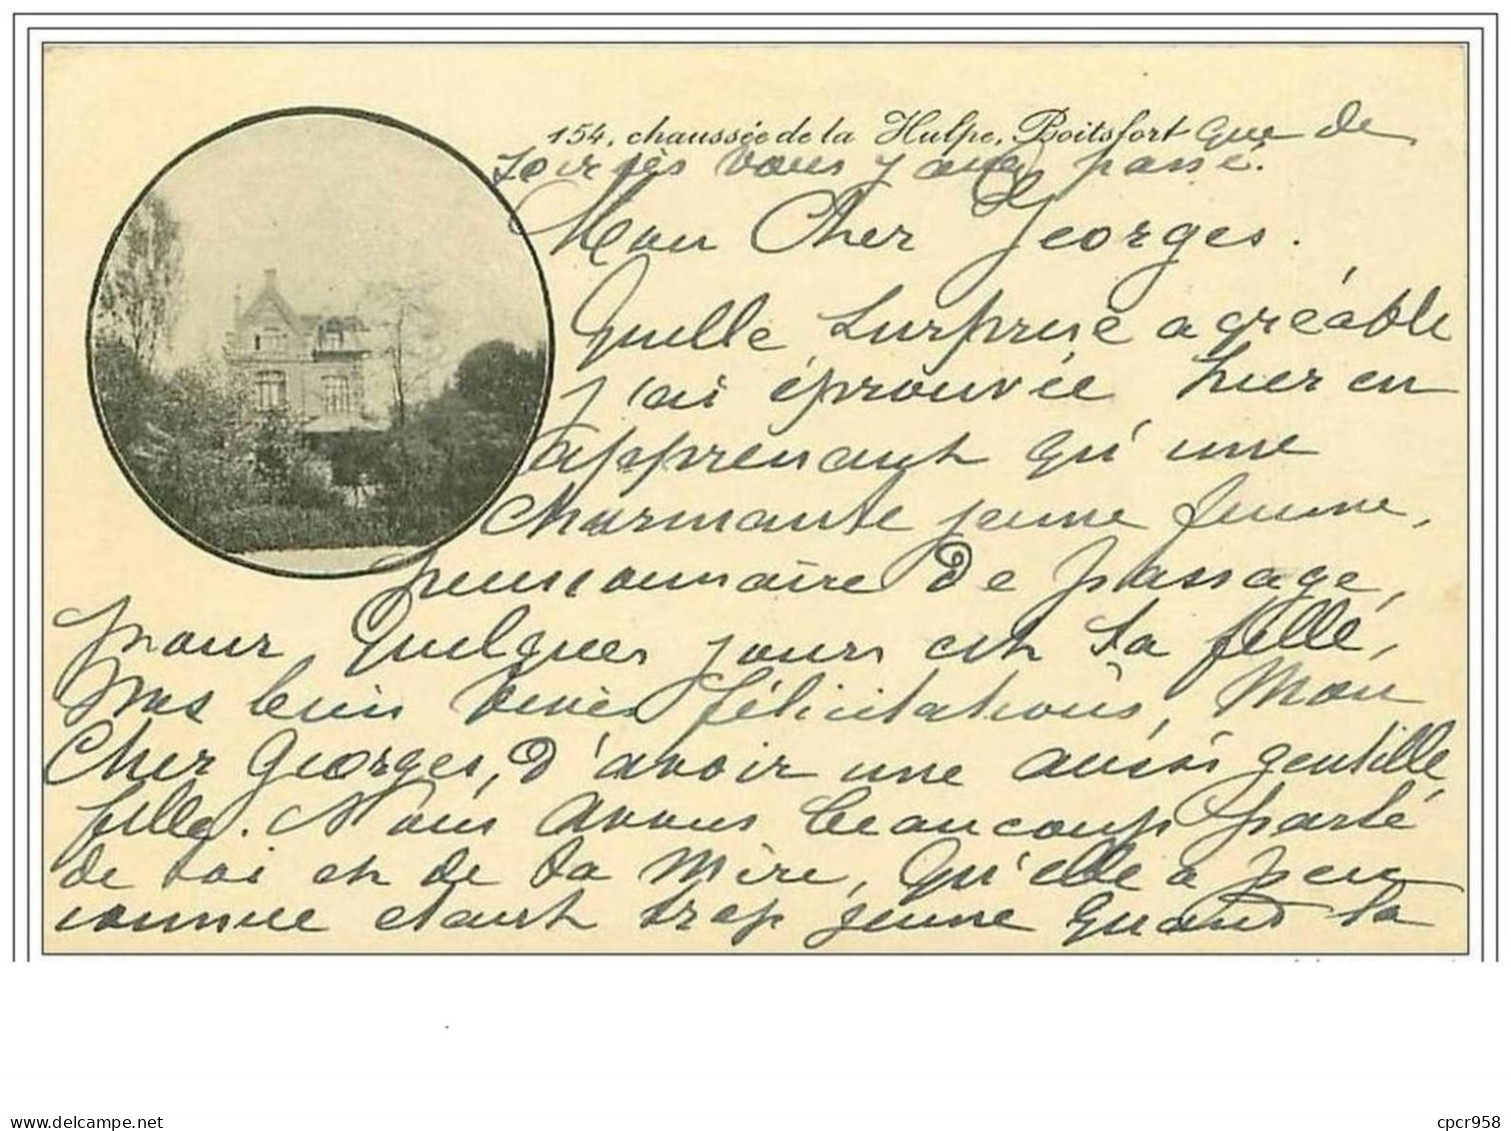 154, chaussée de la Hulpe, Boitsfort que de
soirées vous y avez passé.
Mon Cher Georges.
Quelle surprise agréable
j'ai éprouvée hier en
apprenant qu'une
charmante jeune femme,
pensionnaire de passage,
pour quelques jours est ta fille,
mes bien vives félicitations, Mon
Cher Georges, d'avoir une aussi gentille
fille. Nous avons beaucoup parlé
de toi et de ta mère, qu'elle a peu
connue étant trop jeune quand ta
www.delcampe.net
cpcr958